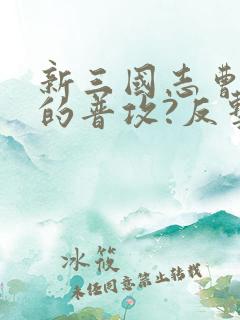 新三國志曹
的普攻?反
冰筱
未经同意禁止转载